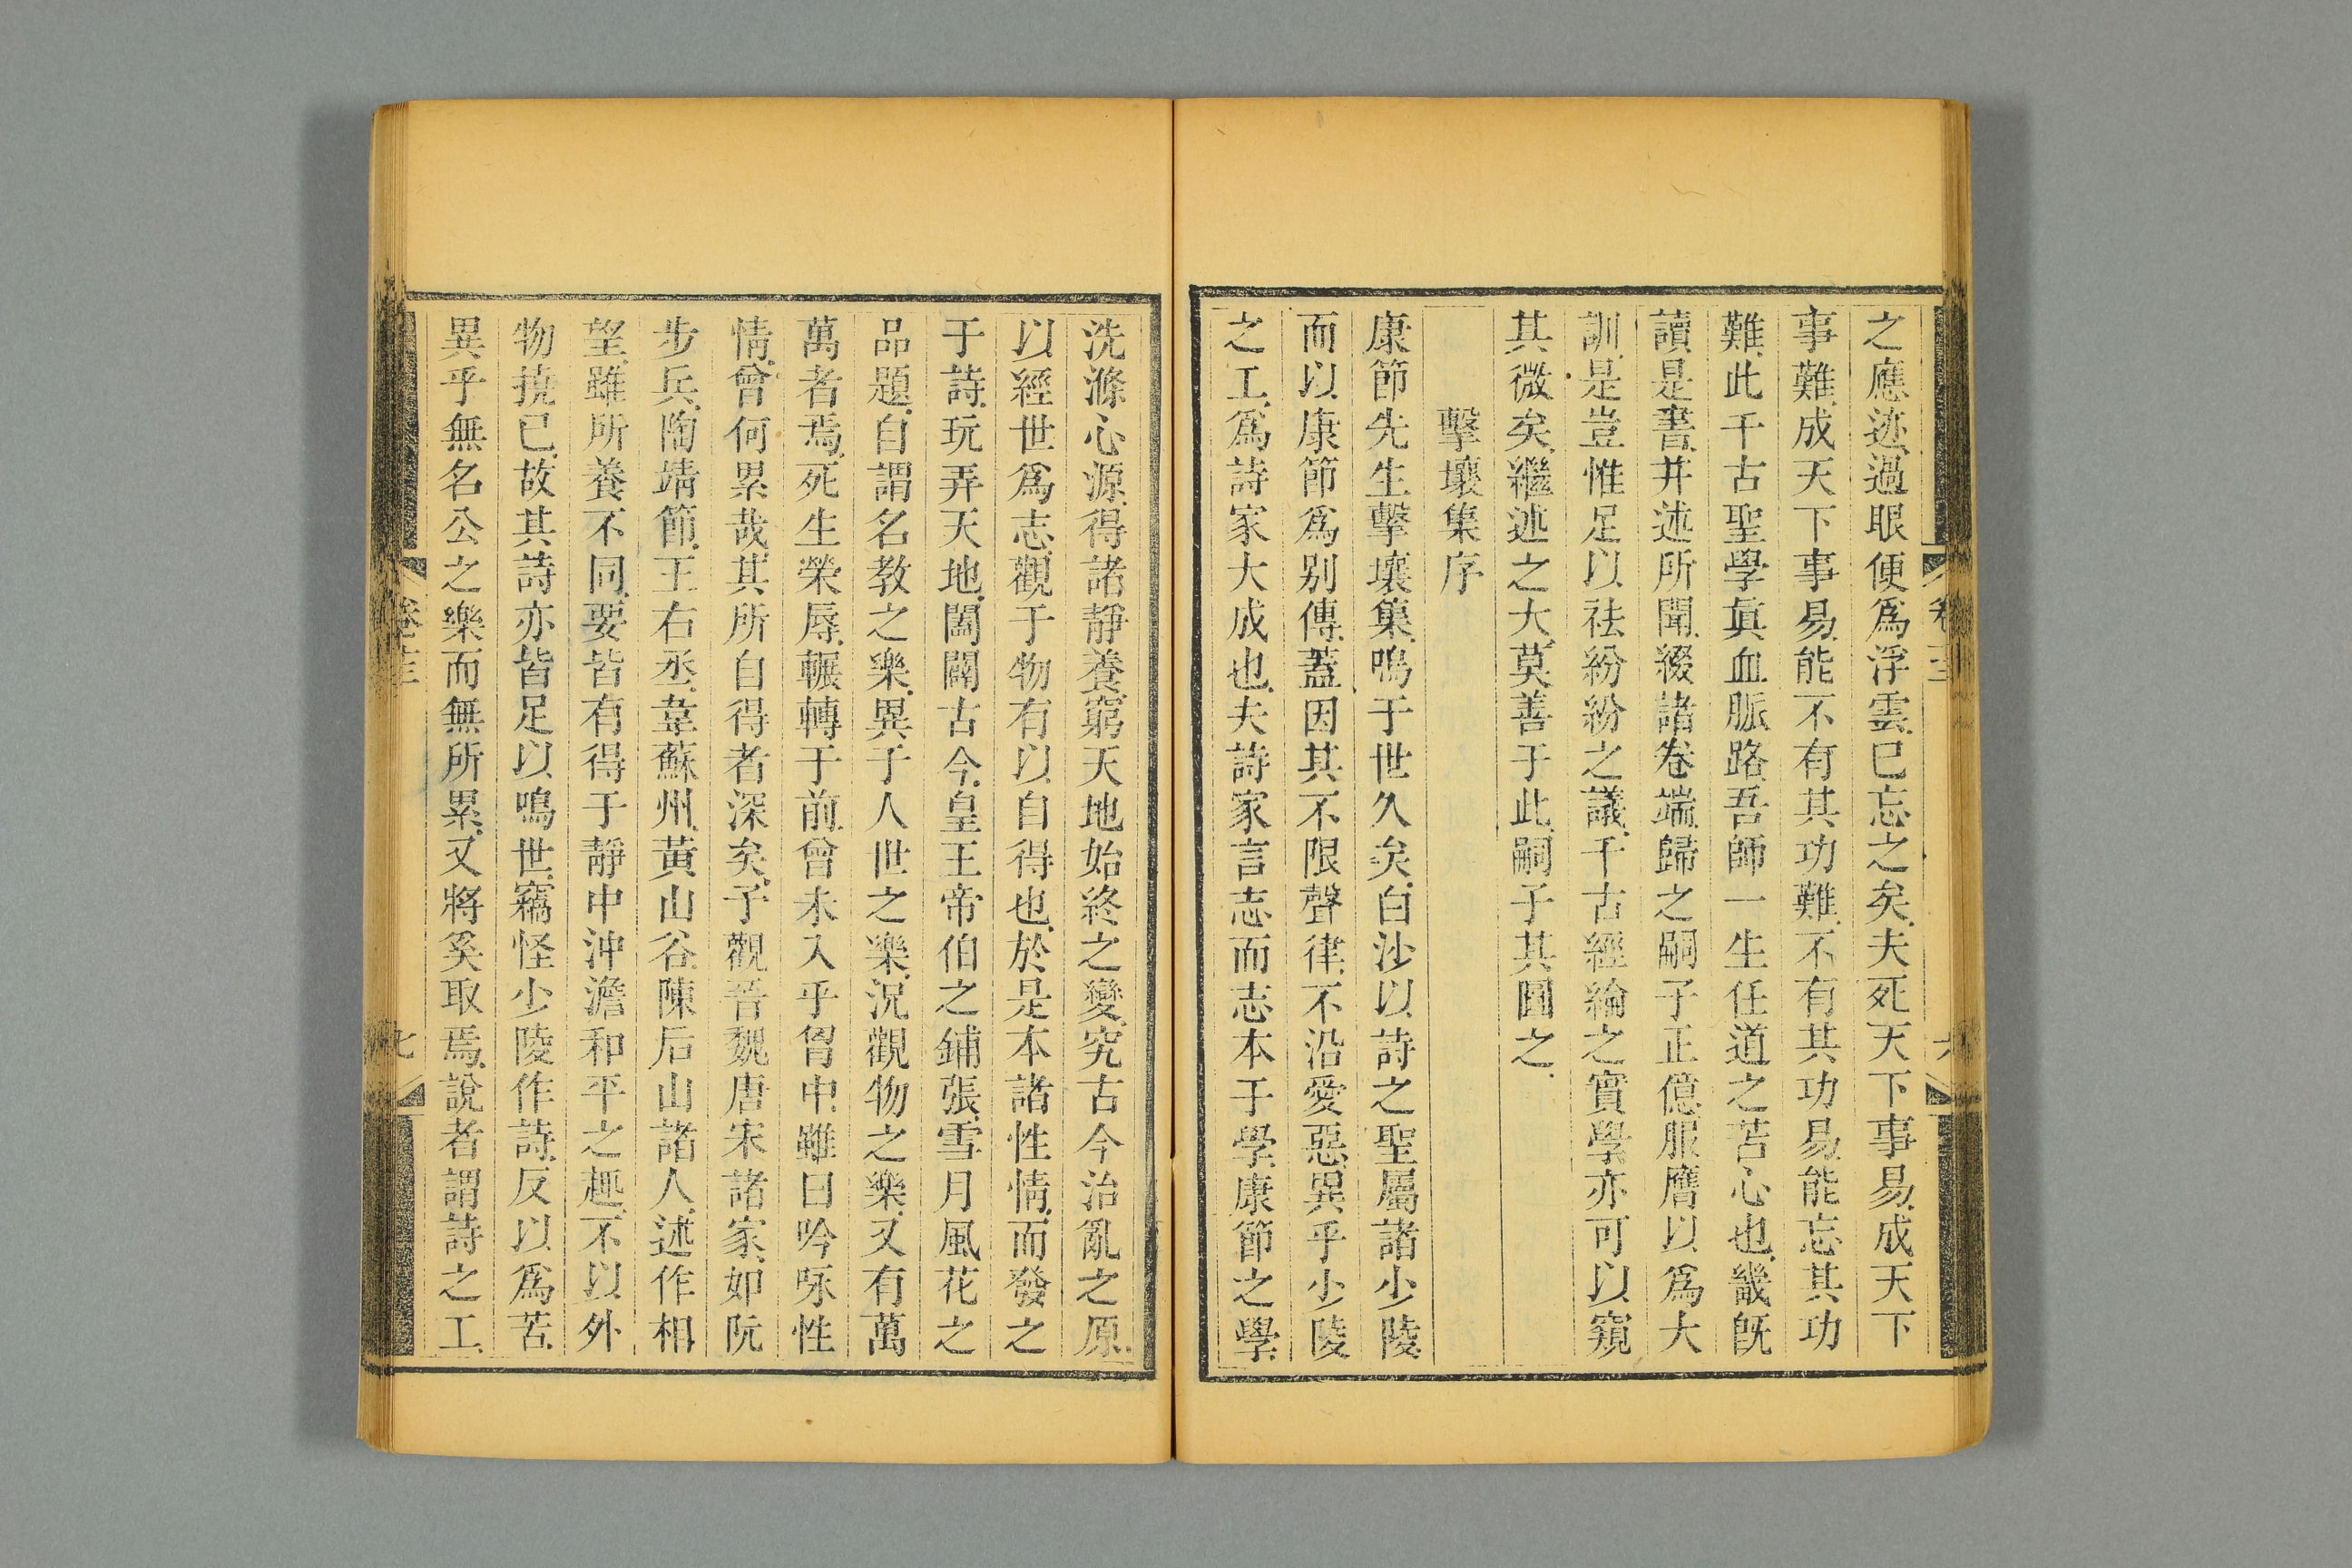 之應迹過眼便爲浮雲已忘之矣夫死天下事易成天下
事難成天下事易能不有其功難不有其功易能忘其功
難此千古聖學眞血脈路吾師一生任道之苦心也畿旣
讀是書幷述所聞綴諸卷端歸之嗣子正億服膺以爲大
訓是豈惟足以祛紛紛之議千古經綸之實學亦可以窺
其微矣繼述之大莫善于此嗣子其圖之
擊壤集序
康節先生擊壤集鳴于世久矣白沙以詩之聖屬諸少陵
而以康節爲别傳蓋因其不限聲律不沿愛惡異乎少陵
之工爲詩家大成也夫詩家言志而志本于學康節之學
洗滌心源得諸靜養窮天地始終之變究古今治亂之原
以經世爲志觀于物有以自得也於是本諸性情而發之
于詩玩弄天地闔闢古今皇王帝伯之鋪張雪月風花之
品題自謂名教之樂異于人世之樂況觀物之樂又有萬
萬者焉死生榮辱輾轉于前曾未入乎胷中雖曰吟咏性
情曾何累哉其所自得者深矣予觀晉魏唐宋諸家如阮
步兵陶靖節王右丞韋蘇州黃山谷陳后山諸人述作相
望雖所養不同要皆有得于靜中沖澹和平之趣不以外
物撓已故其詩亦皆足以鳴世竊怪少陵作詩反以爲苦
異乎無名公之樂而無所累又將奚取焉說者謂詩之工
卷十三
七